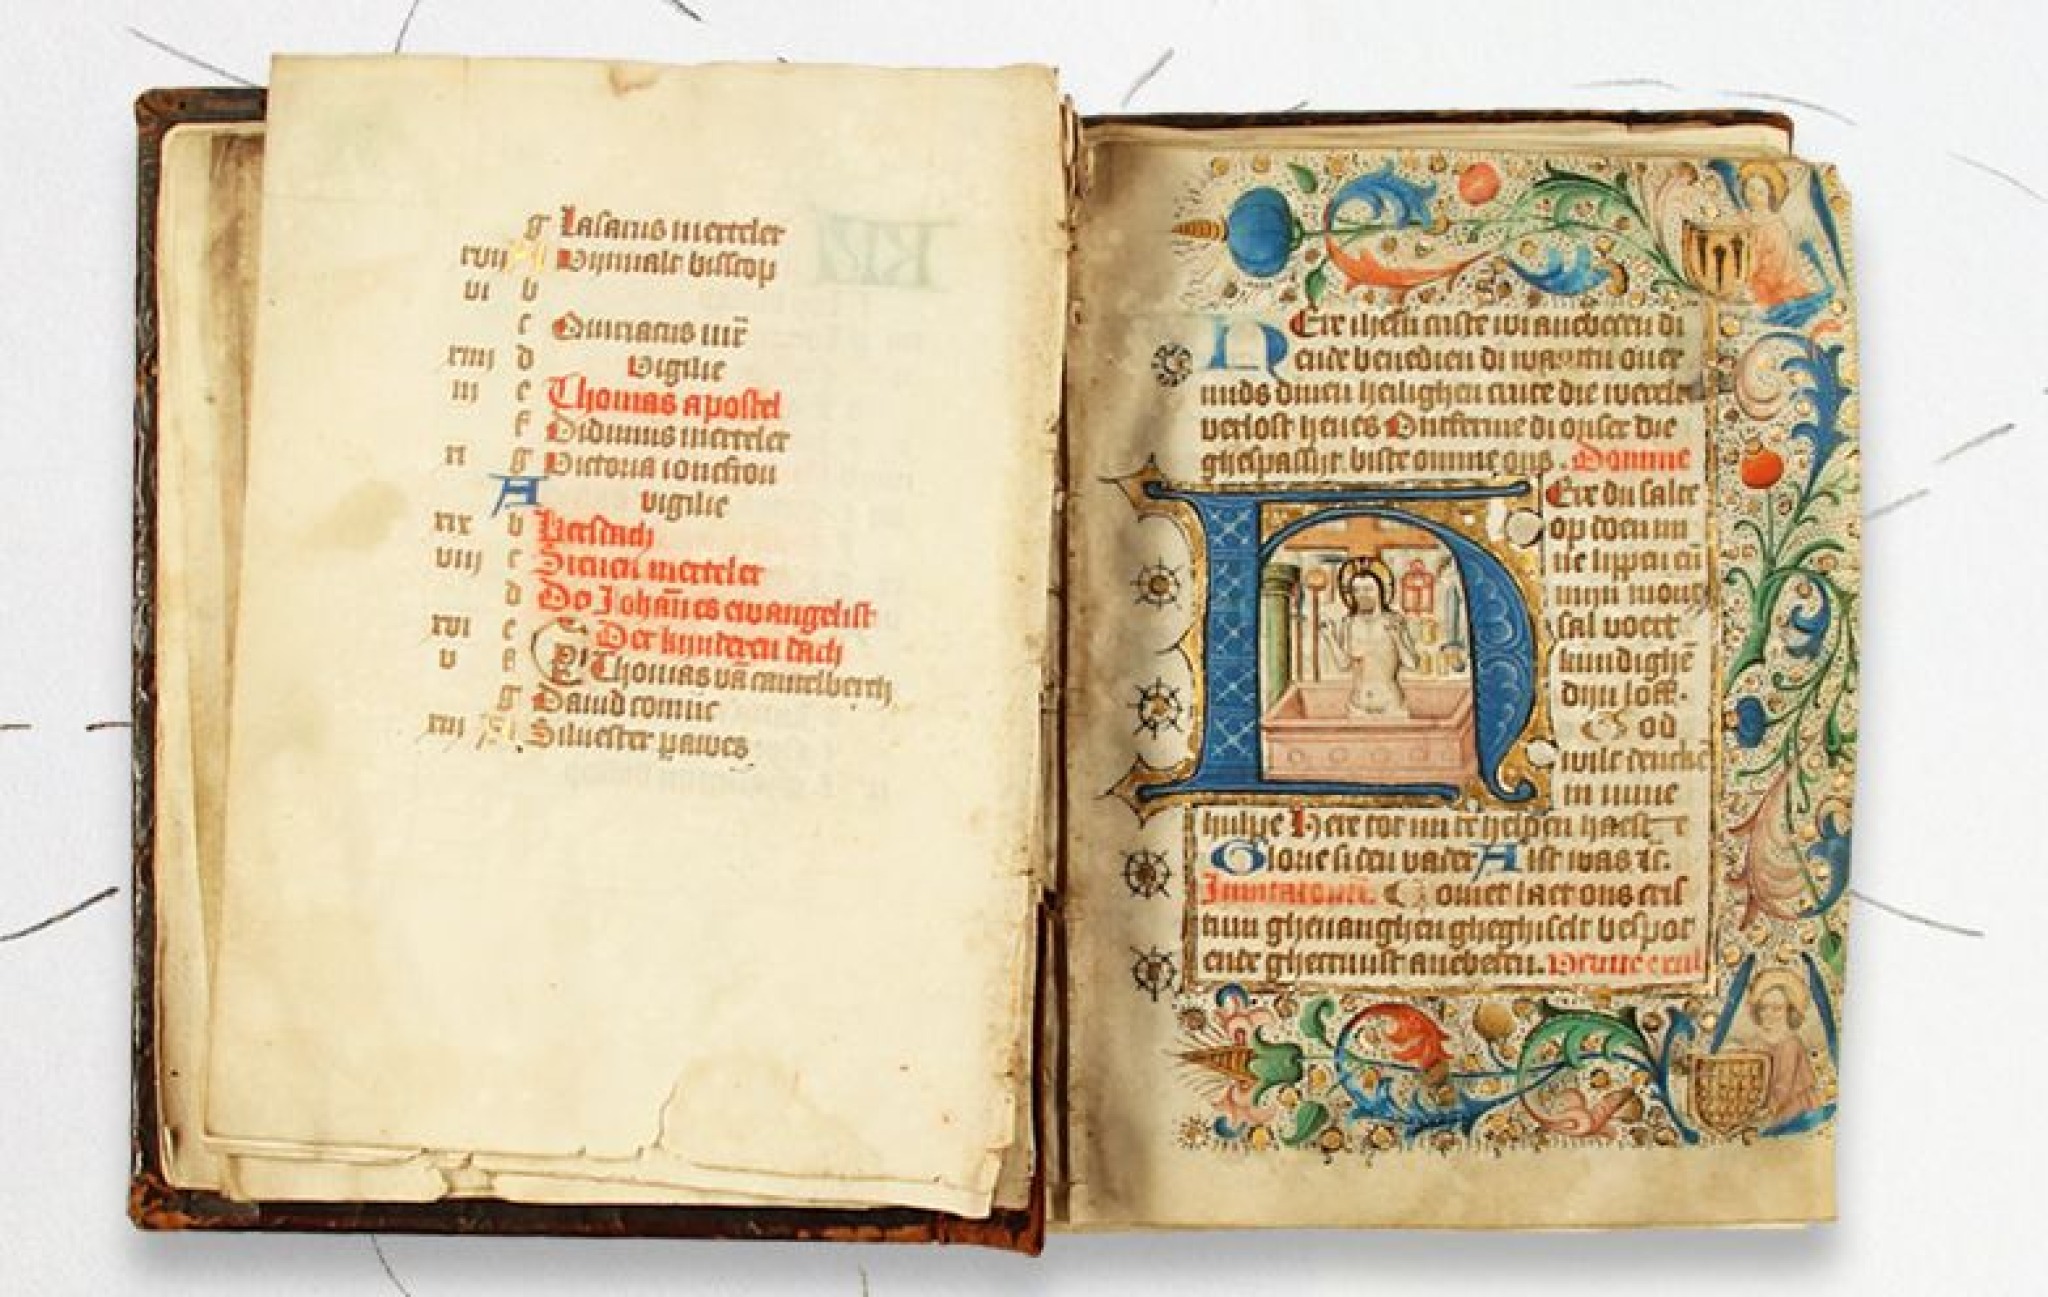 g Lasarus merteler
xvii A Wynnalt bisscop
vi b
c Quiriacus mr̄
xiiij d Vigilie
iij e Thomas apostel
f Didimus merteler
xi g Victoria ioncfrou
A vigilie
xix b Kersdach
viij c Steuen merteler
d So Johān es ewangelist
xvi e Der kynderen dach
v f Thomas vā cantelberch
g Dauid coninc
xiij A Siluester pawes
HEre ihesu criste wi anebeden di
ende benedien di want du ouer
mids dinen heilighen cruce die werelt
verlost heues Ontferme di onser die
ghespassijt biste omme ons. Domine
HEre du salte
op doen mi
ne lippen eñ
mijn mont
sal voert
kundighē
dijn loff.
God
wilt denckē
in mine
hulpe Here tot mi te helpen haest e
Glorie si den vader Alst was &c.
Inuitatorie. Comet laet ons cris
tum gheuanghen gheghiselt bespot
ende ghecruust anebeden. Venite exul